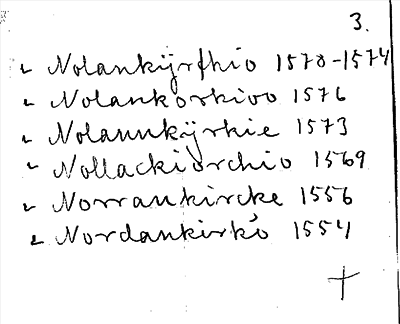 3.
Nolankÿrkio 1570-1574
Nolankorkivo 1576
Nolannkÿrkie 1573
Nollackiorchio 1569
Norrankircke 1556
Nordankirkó 1554